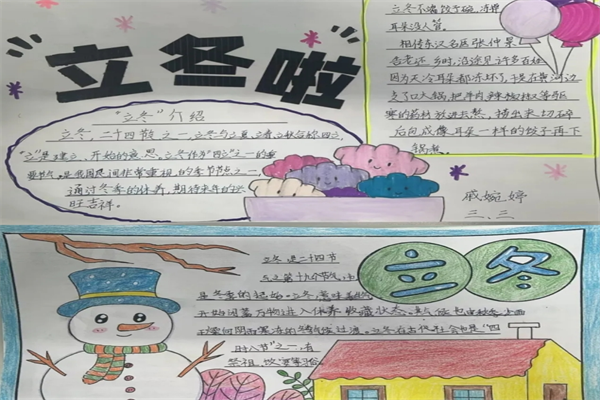 "立冬啦"
"立冬"介绍
立冬,二十四节之一,立冬与立夏,立春,立秋合称四立,
"立"是建立,开始的意思,立冬作为"四立"之一的重
要节点,是我国民间非常重视的季节节点之一
通过冬季的休养,期待来年的兴
旺吉祥。
立冬不端饺子碗,冻掉
耳朵没人管。
相传东汉名医张仲景
告老还乡时,沿途见许多百姓
因为天冷耳朵都冻坏了,于是在黄河边
支了口大锅,把牛肉辣椒
寒的药材放进去熬,捞出来切碎
后包成像耳朵一样的饺子再下
锅煮。
戚婉婷
三、三
立冬
立冬是二十四节
气之第十九个节气,
冬季的起始。立冬,意味着
开始闭蓄万物进入休养、收藏状态。
立冬在古代社会也是"四
时八节"之一,有
祭祖、饮宴等习俗